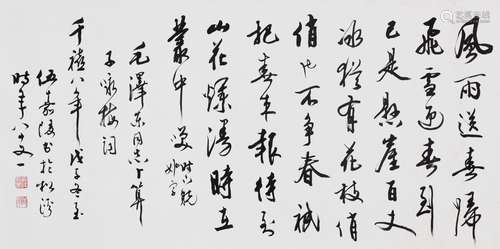 風雨送春歸
飛雪迎春到
已是懸崖百丈
冰猶有花枝俏
俏也不争春祇
把春来報待到
山花爛漫時在
叢中笑
時下脱
她字
毛澤东同志卜算
子咏梅詞
千禧八年戊子冬至
伍嘉陵书於松
時年八十又一